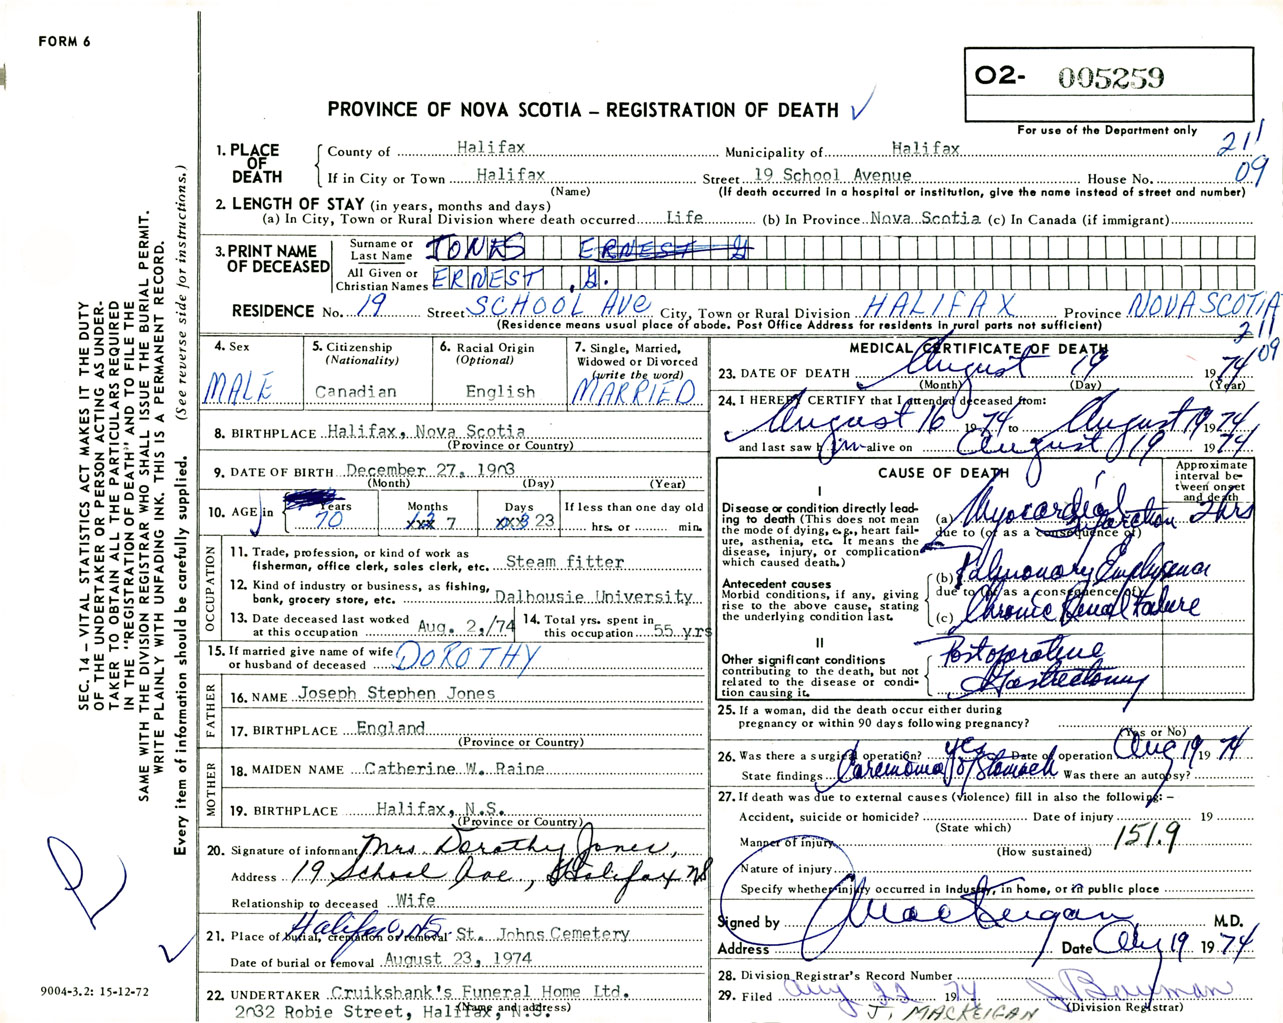 FORM 6
02- 005259
PROVINCE OF NOVA SCOTIA – REGISTRATION OF DEATH ✓
For use of the Department only
211
09
1. PLACE OF DEATH
County of Halifax Municipality of Halifax
If in City or Town Halifax Street 19 School Avenue House No.
(Name) (If death occurred in a hospital or institution, give the name instead of street and number)
2. LENGTH OF STAY (in years, months and days)
(a) In City, Town or Rural Division where death occurred Life (b) In Province Nova Scotia (c) In Canada (if immigrant)
3. PRINT NAME OF DECEASED
Surname or Last Name JONES ERNEST G
All Given or Christian Names ERNEST, G.
RESIDENCE No. 19 Street SCHOOL AVE City, Town or Rural Division HALIFAX Province NOVA SCOTIA
(Residence means usual place of abode. Post Office Address for residents in rural parts not sufficient)
211
09
4. Sex
MALE
5. Citizenship
(Nationality)
Canadian
6. Racial Origin
(Optional)
English
7. Single, Married,
Widowed or Divorced
(write the word)
MARRIED
8. BIRTHPLACE Halifax, Nova Scotia
(Province or Country)
9. DATE OF BIRTH December 27, 1903
(Month) (Day) (Year)
10. AGE in
Years Months Days If less than one day old
70 7 23 hrs. or min.
OCCUPATION
11. Trade, profession, or kind of work as
fisherman, office clerk, sales clerk, etc. Steam fitter
12. Kind of industry or business, as fishing,
bank, grocery store, etc. Dalhousie University
13. Date deceased last worked
at this occupation Aug. 2,/74
14. Total yrs. spent in
this occupation 55 yrs
15. If married give name of wife
or husband of deceased DOROTHY
FATHER
16. NAME Joseph Stephen Jones
17. BIRTHPLACE England
(Province or Country)
MOTHER
18. MAIDEN NAME Catherine W. Raine
19. BIRTHPLACE Halifax, N.S.
(Province or Country)
20. Signature of informant Mrs Dorothy Jones,
Address 19 School Ave, Halifax NS
Relationship to deceased Wife
21. Place of burial, cremation or removal Halifax, N.S. St. Johns Cemetery
Date of burial or removal August 23, 1974
22. UNDERTAKER Cruikshank's Funeral Home Ltd.
(Name and address)
2032 Robie Street, Halifax, N.S.
MEDICAL CERTIFICATE OF DEATH
23. DATE OF DEATH August 19 1974
(Month) (Day) (Year)
24. I HEREBY CERTIFY that I attended deceased from:
August 16 1974 to August 19 1974
and last saw him alive on August 19 1974
CAUSE OF DEATH
Approximate interval between onset and death
I
Disease or condition directly leading to death (This does not mean the mode of dying, e.g., heart failure, asthenia, etc. It means the disease, injury, or complication which caused death.)
(a) Myocardial Infarction 2 hrs
due to (or as a consequence of)
Antecedent causes
Morbid conditions, if any, giving rise to the above cause, stating the underlying condition last.
(b) Pulmonary Emphysema
due to (or as a consequence of)
(c) Chronic Renal Failure
II
Other significant conditions
contributing to the death, but not related to the disease or condition causing it.
Postoperative
Gastrectomy
25. If a woman, did the death occur either during
pregnancy or within 90 days following pregnancy?
(Yes or No)
26. Was there a surgical operation? yes Date of operation Aug 19 1974
State findings Carcinoma of Stomach Was there an autopsy?
27. If death was due to external causes (violence) fill in also the following: –
Accident, suicide or homicide? Date of injury 19
(State which)
Manner of injury 151.9
(How sustained)
Nature of injury
Specify whether injury occurred in industry, in home, or in public place
Signed by J MacKeigan M.D.
Address Date Aug 19 1974
28. Division Registrar's Record Number
29. Filed Aug 22 1974 J Bowman
(Division Registrar)
J. MACKEIGAN
SEC. 14 – VITAL STATISTICS ACT MAKES IT THE DUTY
OF THE UNDERTAKER OR PERSON ACTING AS UNDER-
TAKER TO OBTAIN ALL THE PARTICULARS REQUIRED
IN THE "REGISTRATION OF DEATH" AND TO FILE THE
SAME WITH THE DIVISION REGISTRAR WHO SHALL ISSUE THE BURIAL PERMIT.
WRITE PLAINLY WITH UNFADING INK. THIS IS A PERMANENT RECORD.
Every item of information should be carefully supplied. (See reverse side for instructions.)
9004-3.2: 15-12-72